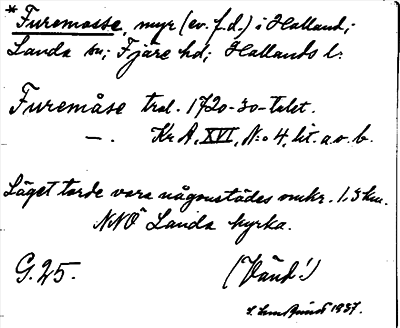 *Furemosse, myr (ev. f.d.) i Halland;
Landa sn; Fjäre hd; Hallands l.
Furemåse trol. 1720-30-talet.
—. Kr A, XVI, N:o 4, lit. a o. b.
Läget torde vara någonstädes omkr. 1,5 km.
NNÖ Landa kyrka.
G. 25. (Vänd!)
1937.